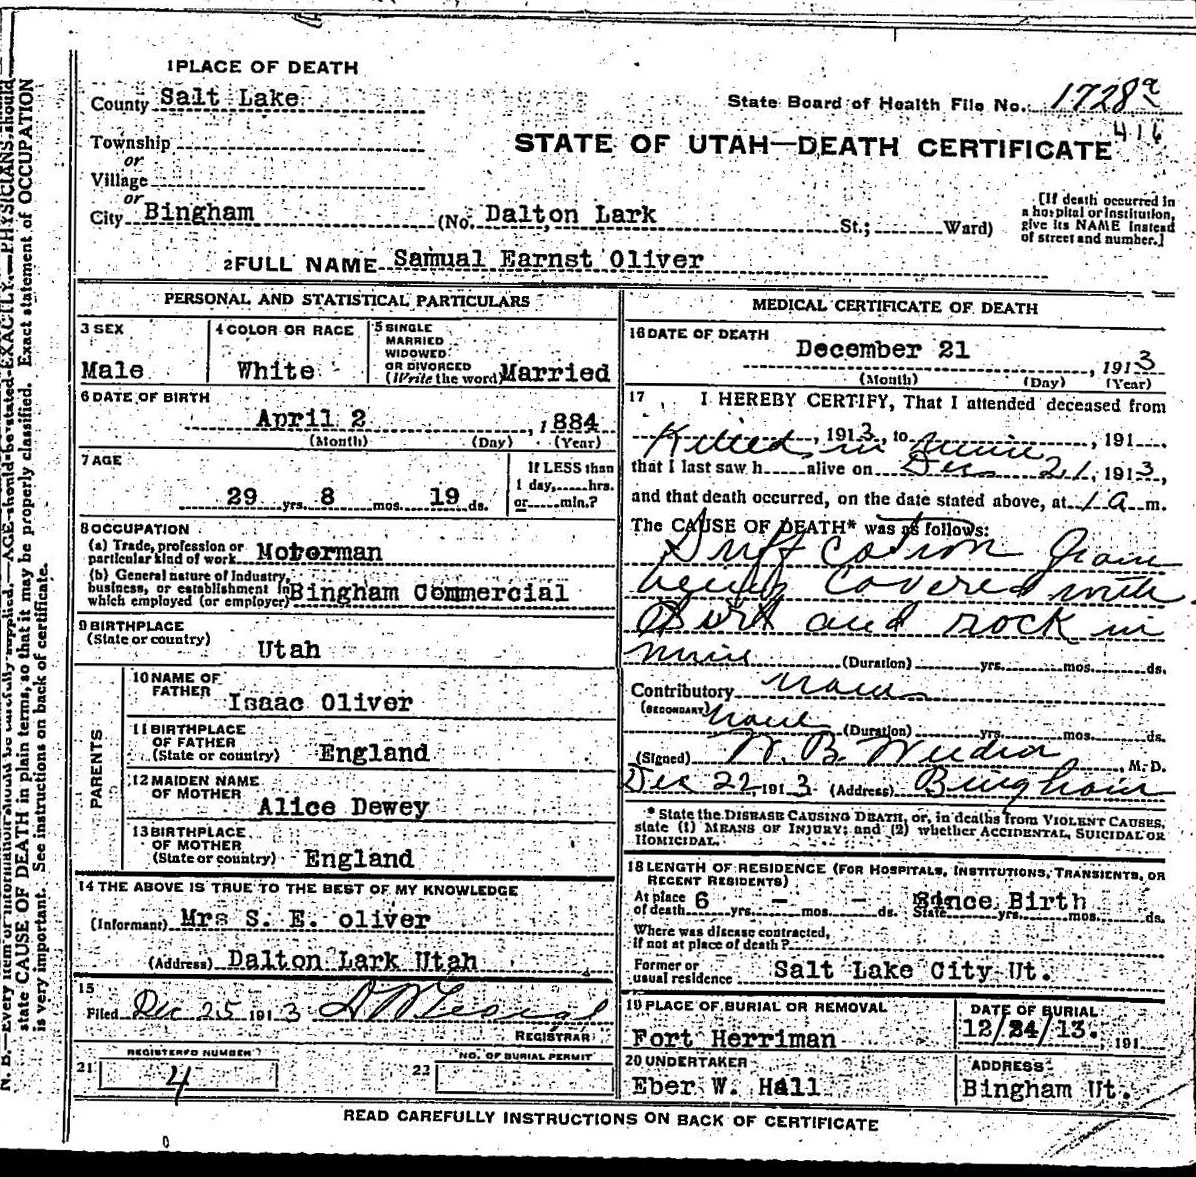 1 PLACE OF DEATH
County Salt Lake
State Board of Health File No. 1728a
416
Township
STATE OF UTAH—DEATH CERTIFICATE
or
Village
or
City Bingham (No. Dalton Lark St.; Ward)
[If death occurred in
a hospital or institution,
give its NAME instead
of street and number.]
2 FULL NAME Samual Earnst Oliver
PERSONAL AND STATISTICAL PARTICULARS
3 SEX
Male
4 COLOR OR RACE
White
5 SINGLE
MARRIED
WIDOWED
OR DIVORCED
(Write the word) Married
6 DATE OF BIRTH
April 2, 1884
(Month) (Day) (Year)
7 AGE
29 yrs. 8 mos. 19 ds.
If LESS than
1 day, hrs.
or min.?
8 OCCUPATION
(a) Trade, profession or
particular kind of work Motorman
(b) General nature of Industry,
business, or establishment in
which employed (or employer) Bingham Commercial
9 BIRTHPLACE
(State or country)
Utah
PARENTS
10 NAME OF
FATHER Isaac Oliver
11 BIRTHPLACE
OF FATHER
(State or country) England
12 MAIDEN NAME
OF MOTHER
Alice Dewey
13 BIRTHPLACE
OF MOTHER
(State or country) England
14 THE ABOVE IS TRUE TO THE BEST OF MY KNOWLEDGE
(Informant) Mrs S. E. oliver
(Address) Dalton Lark Utah
15
Filed Dec 25 1913
REGISTRAR
REGISTERED NUMBER
21 4
NO. OF BURIAL PERMIT
22
MEDICAL CERTIFICATE OF DEATH
16 DATE OF DEATH
December 21, 1913
(Month) (Day) (Year)
17 I HEREBY CERTIFY, That I attended deceased from
Killed in mine, 1913, to , 191
that I last saw h alive on Dec 21, 1913,
and that death occurred, on the date stated above, at 1 a m.
The CAUSE OF DEATH* was as follows:
from
being covered with
dirt and rock in
mine (Duration) yrs. mos. ds.
Contributory none
(SECONDARY) none (Duration) yrs. mos. ds.
(Signed) W. B. M. D.
Dec 22 1913 (Address) Bingham
* State the DISEASE CAUSING DEATH, or, in deaths from VIOLENT CAUSES,
state (1) MEANS OF INJURY; and (2) whether ACCIDENTAL, SUICIDAL OR
HOMICIDAL.
18 LENGTH OF RESIDENCE (FOR HOSPITALS, INSTITUTIONS, TRANSIENTS, OR
RECENT RESIDENTS)
At place
of death 6 yrs. - mos. - ds. State Since Birth yrs. mos. ds.
Where was disease contracted,
if not at place of death?
Former or
usual residence Salt Lake City Ut.
19 PLACE OF BURIAL OR REMOVAL
Fort Herriman
DATE OF BURIAL
12/24/13. 191
20 UNDERTAKER
Eber W. Hall
ADDRESS
Bingham Ut.
READ CAREFULLY INSTRUCTIONS ON BACK OF CERTIFICATE
N. B.—Every item of information should be carefully supplied. AGE should be stated EXACTLY. PHYSICIANS should
state CAUSE OF DEATH in plain terms, so that it may be properly classified. Exact statement of OCCUPATION
is very important. See instructions on back of certificate.